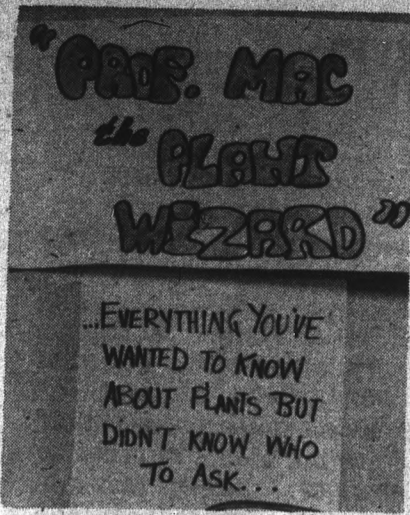 "PROF. MAC
the PLANT
WIZARD"
...EVERYTHING YOU'VE
WANTED TO KNOW
ABOUT PLANTS BUT
DIDNT KNOW WHO
TO ASK...